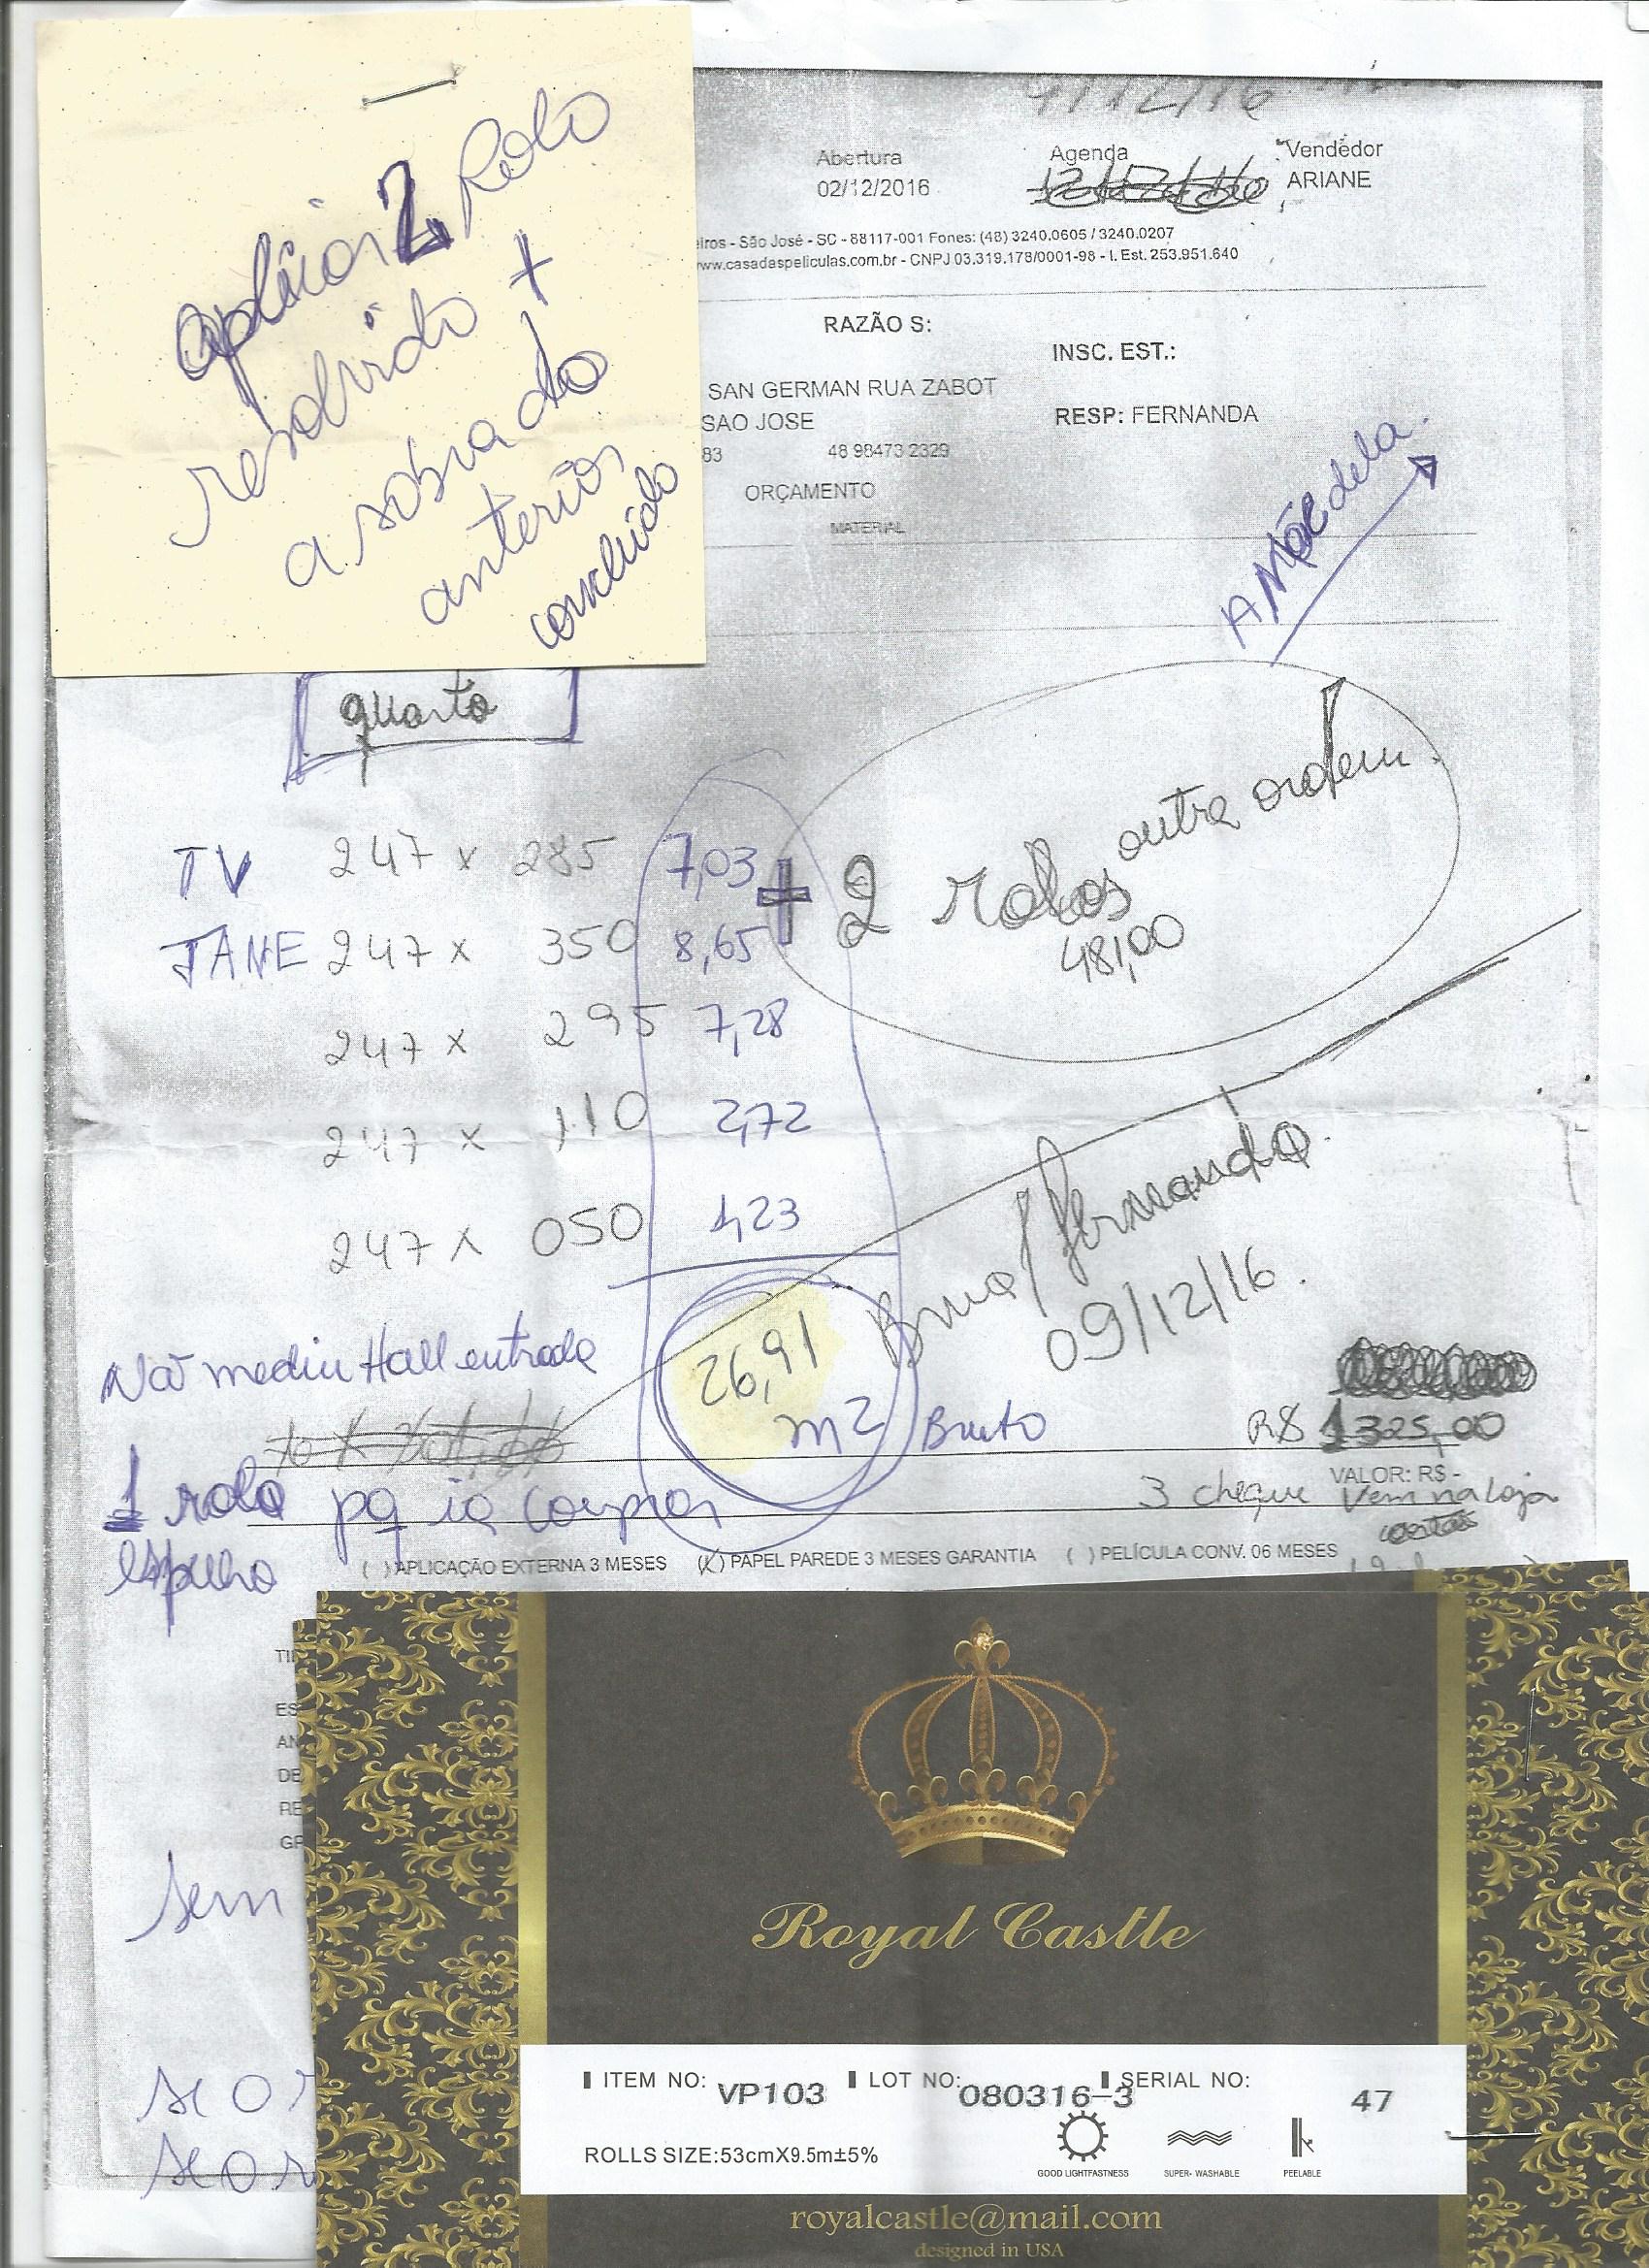 aplicar 2 Rolo
resolvido +
a sobra do
anterior
concluido
Abertura
02/12/2016
Agenda
Vendedor
ARIANE
eiros - São José - SC - 88117-001 Fones: (48) 3240.0605 / 3240.0207
www.casadaspeliculas.com.br - CNPJ 03.319.178/0001-98 - I. Est. 253.951.640
RAZÃO S:
INSC. EST.:
SAN GERMAN RUA ZABOT
SAO JOSE
RESP: FERNANDA
83 48 98473 2329
ORÇAMENTO
MATERIAL
A Mãe dela.
quarto
TV 247 x 285 7,03
+ 2 rolos outra ordem.
481,00
JANE 247 x 350 8,65
247 x 295 7,28
247 x 110 2,72
247 x 050 1,23
Bruna/fernanda.
09/12/16.
Não mediu Hall entrada
26,91
m2 Bruto
R$ 1325,00
VALOR: R$ -
1 rolo pq ia comprar
espelho
3 cheque Vem na Loja
( ) APLICAÇÃO EXTERNA 3 MESES (X) PAPEL PAREDE 3 MESES GARANTIA ( ) PELÍCULA CONV. 06 MESES
ES
AN
DE
RE
GP
sem
Royal Castle
ITEM NO: VP103 LOT NO: 080316-3 SERIAL NO: 47
ROLLS SIZE:53cmX9.5m±5%
GOOD LIGHTFASTNESS SUPER- WASHABLE PEELABLE
royalcastle@mail.com
designed in USA